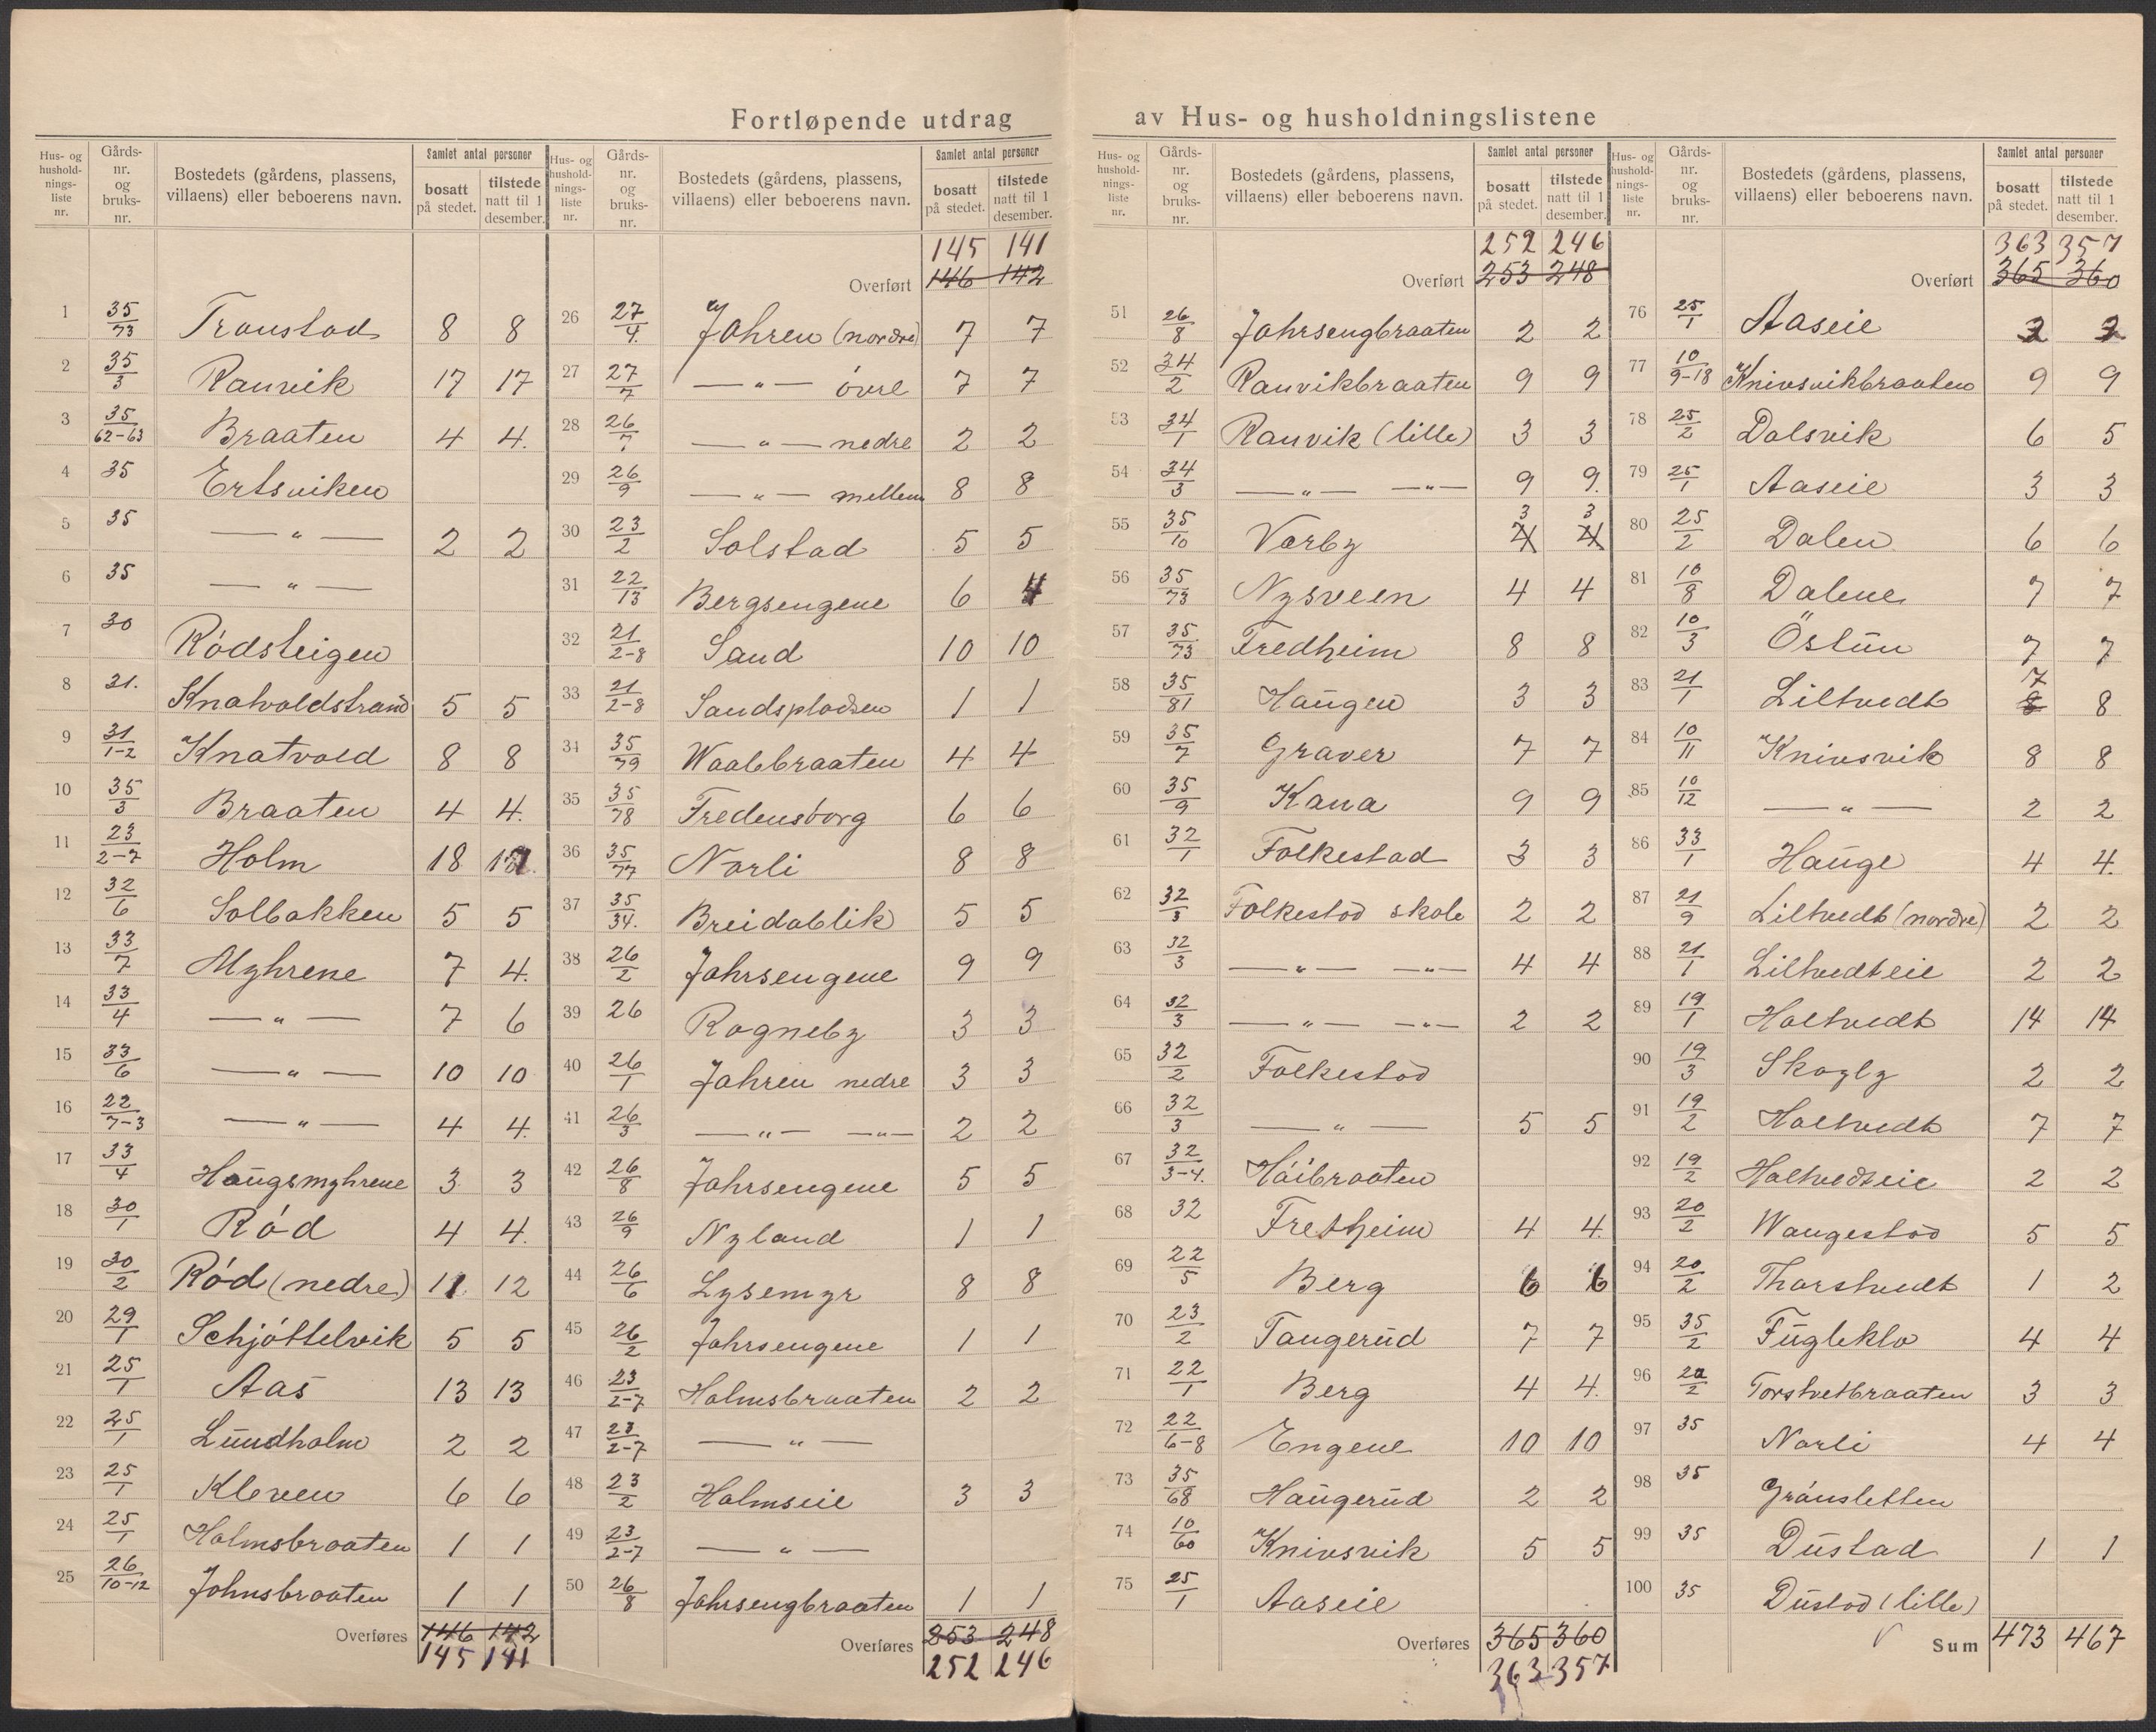 Fortløpende utdrag av Hus- og husholdningslistene
Hus- og hushold-nings-liste nr. | Gårds-nr. og bruks-nr. | Bostedets (gårdens, plassens, villaens) eller beboerens navn. | Samlet antal personer | bosatt på stedet. | tilstede natt til 1 desember.
1 35/73 Tronstad 8 8
2 35/3 Ranvik 17 17
3 35/62-63 Braaten 4 4.
4 35 Ertsviken
5 35 — " — 2 2
6 35 — " —
7 30 Rödsteigen
8 31. Knatvoldstrand 5 5
9 31/1-2 Knatvold 8 8
10 35/3 Braaten 4 4.
11 23/2-7 Holm 18 17
12 32/6 Solbakken 5 5
13 33/7 Myhrene 7 4.
14 33/4 — " — 7 6
15 33/6 — " — 10 10
16 22/7-3 — " — 4 4.
17 33/4 Haugsmyhrene 3 3
18 30/1 Röd 4 4.
19 30/2 Röd (nedre) 11 12
20 29/1 Schjöttelvik 5 5
21 25/1 Aas 13 13
22 25/1 Lundholm 2 2
23 25/1 Kleven 6 6
24 25/1 Holmsbraaten 1 1
25 26/10-12 Johnsbraaten 1 1
Overføres 146 142
145 141
Hus- og hushold-nings-liste nr. | Gårds-nr. og bruks-nr. | Bostedets (gårdens, plassens, villaens) eller beboerens navn. | Samlet antal personer | bosatt på stedet. | tilstede natt til 1 desember.
145 141
Overført 146 142
26 27/4. Jahren (nordre) 7 7
27 27/7 — " — övre 7 7
28 26/7 — " — nedre 2 2
29 26/9 — " — mellem 8 8
30 23/2 Solstad 5 5
31 22/13 Bergsengene 6 4
32 21/2-8 Sand 10 10
33 21/2-8 Sandspladsen 1 1
34 35/79 Waalebraaten 4 4
35 35/78 Fredensborg 6 6
36 35/77 Norli 8 8
37 35/34. Breidablik 5 5
38 26/2 Jahrsengene 9 9
39 26 Rogneby 3 3
40 26/1 Jahren nedre 3 3
41 26/3 — " — — " — 2 2
42 26/8 Jahrsengene 5 5
43 26/9 Nyland 1 1
44 26/6 Lysemyr 8 8
45 26/2 Jahrsengene 1 1
46 23/2-7 Holmsbraaten 2 2
47 23/2-7 — " —
48 23/2 Holmseie 3 3
49 23/2-7 — " —
50 26/8 Jahrsengbraaten 1 1
Overføres 253 248
252 246
Hus- og hushold-nings-liste nr. | Gårds-nr. og bruks-nr. | Bostedets (gårdens, plassens, villaens) eller beboerens navn. | Samlet antal personer | bosatt på stedet. | tilstede natt til 1 desember.
252 246
Overført 253 248
51 26/8 Jahrsengbraaten 2 2
52 34/2 Ranvikbraaten 9 9
53 34/1 Ranvik (lille) 3 3
54 34/3 — " — — " — 9 9.
3 3
55 35/10 Værby 4 4
56 35/73 Nysveen 4 4
57 35/73 Fredheim 8 8
58 35/81 Haugen 3 3
59 35/7 Graver 7 7
60 35/9 Kana 9 9
61 32/1 Folkestad 3 3
62 32/3 Folkestad skole 2 2
63 32/3 — " — — " — 4 4
64 32/3 — " — — " — 2 2
65 32/2 Folkestad
66 32/3 — " — 5 5
67 32/3-4. Höibraaten
68 32 Fretheim 4 4.
69 22/5 Berg 6 6
70 23/2 Tangerud 7 7
71 22/1 Berg 4 4.
72 22/6-8 Engene 10 10
73 35/68 Haugerud 2 2
74 10/60 Knivsvik 5 5
75 25/1 Aaseie
Overføres 365 360
363 357
Hus- og hushold-nings-liste nr. | Gårds-nr. og bruks-nr. | Bostedets (gårdens, plassens, villaens) eller beboerens navn. | Samlet antal personer | bosatt på stedet. | tilstede natt til 1 desember.
363 357
Overført 365 360
76 25/1 Aaseie
77 10/9-18 Knivsvikbraaten 9 9
78 25/2 Dalsvik 6 5
79 25/1 Aaseie 3 3
80 25/2 Dalen 6 6
81 10/8 Dalene 7 7
82 10/3 Östun 7 7
7
83 21/1 Liltvedt 8 8
84 10/11 Knivsvik 8 8
85 10/12 — " — 2 2
86 33/1 Hauge 4 4.
87 21/9 Liltvedt (nordre) 2 2
88 21/1 Liltvedteie 2 2
89 19/1 Holtvedt 14 14
90 19/3 Skogly 2 2
91 19/2 Holtvedt 7 7
92 19/2 Holtvedteie 2 2
93 20/2 Wangestad 5 5
94 20/2 Thorstvedt 1 2
95 35/2 Fugleklo 4 4
96 20/2 Torstvetbraaten 3 3
97 35 Norli 4 4
98 35 Grönsletten
99 35 Dustad 1 1
100 35 Dustad (lille)
Sum 473 467